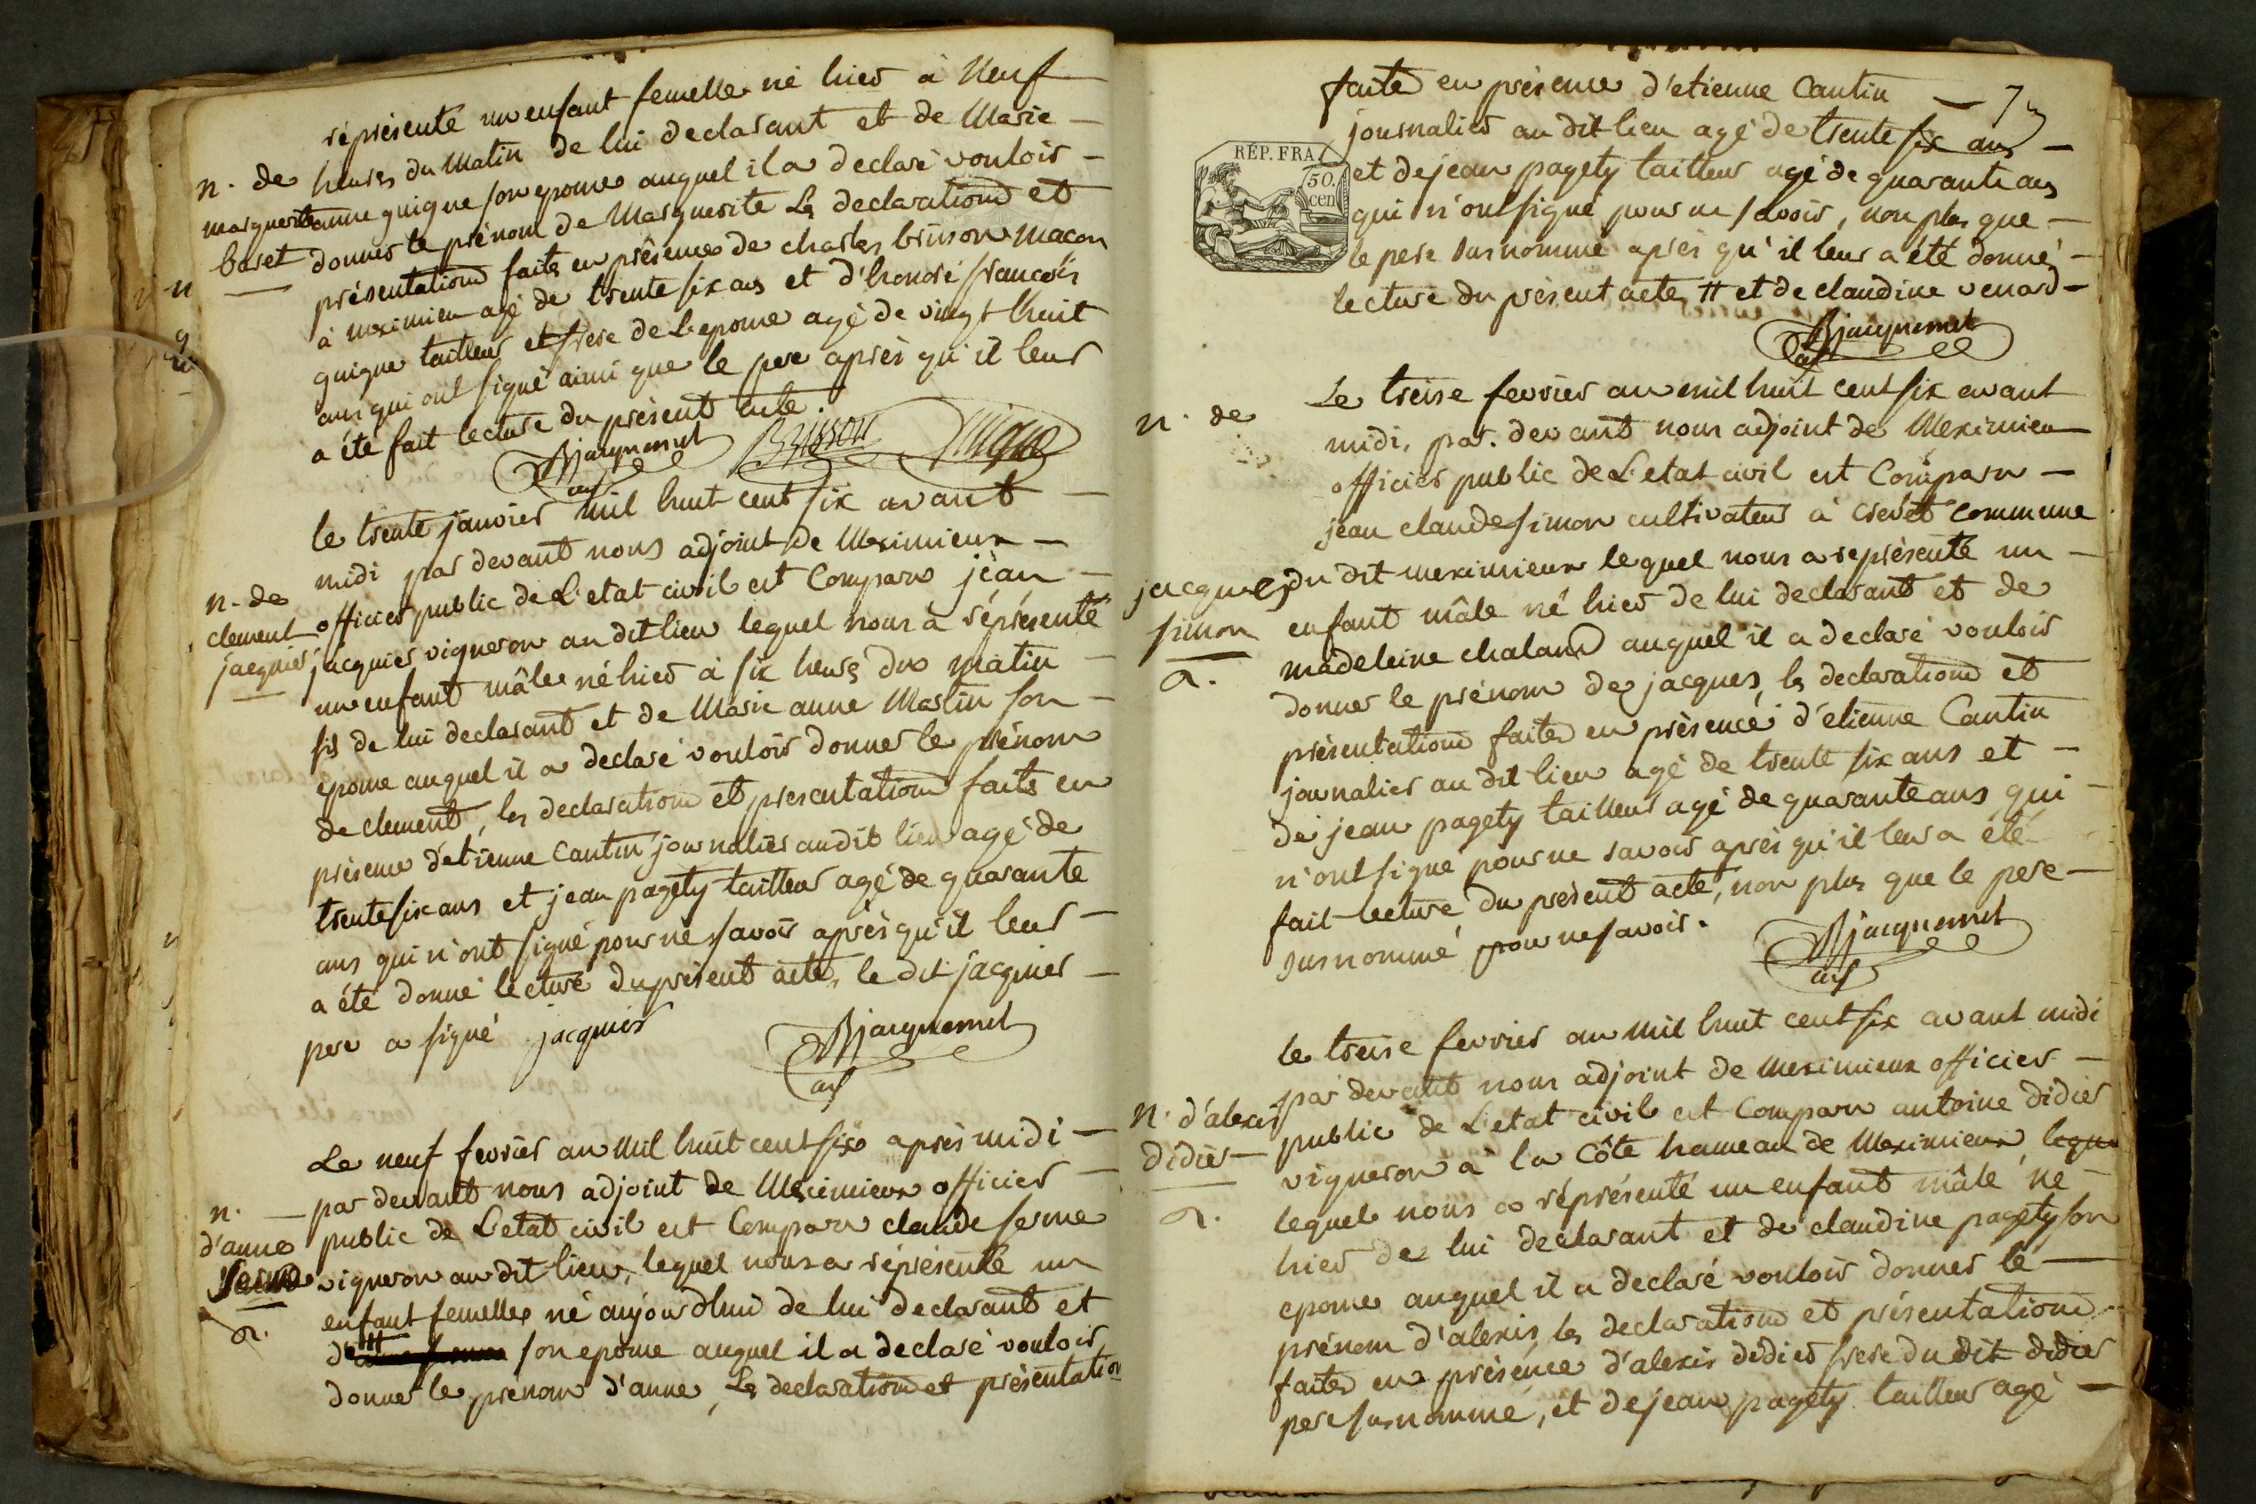 réprésenté un enfant femelle né hier à Neuf
n. de heures du Matin de lui declarant et de Marie
marguerite anne guigue son epouse auquel il a declaré vouloir
baret donner le prénom de Marguerite Ls declarationd et
présentationd faites en présence de charles brisson macon
à meximieu agé de trente six ans et d'honoré françois
guigue tailleur et frere de L'epouse agé de vingt huit
ans qui ont signé ainsi que le pere après qu'il leur
a été fait lecture du présent acte.
Bjacquemet Brisson guigue
adj
le trente janvier mil huit cent six avant
midi par devant nous adjoint de Meximieux
n. de officier public de L'etat civil est Comparu jean
clement jacquier vigneron au dit lieu lequel nous a réprésenté
jacquier un enfant mâle né hier à six heurs du matin
fils de lui declarant et de Marie anne Martin son
epouse auquel il a declaré vouloir donner le prénom
de clement, les declarationd et presentationd faits en
présence d'etienne Cantin journalier audit lieu agé de
trente six ans et jean pagety tailleur agé de quarante
ans qui n'ont signé pour ne savoir après qu'il leur
a été donné lecture du présent acte, le dit jacquier
pere a signé jacquier Bjacquemet
adj
Le neuf fevrier an mil huit cent six après midi
n. par devant nous adjoint de Meximieux officier
d'anne public de L'etat civil est Comparu claude ferme
ferme vigneron au dit lieu, lequel nous a réprésenté un
a. enfant femelle né aujourdhui de lui declarant et
de # son epouse auquel il a declaré vouloir
donner le prenom d'anne, Ls declarationd et présentation
faite en présence d'etienne Cantin
journalier au dit lieu agé de trente six ans
RÉP. FRA
50.
cen
et de jean pagety tailleur agé de quarante ans
qui n'ont signé pour ne savoir, non plus que
le pere susnommé après qu'il leur a été donné
lecture du présent acte, # et de claudine venard
Bjacquemet
adj
Le treise fevrier an mil huit cent six avant
n. de midi, par devant nous adjoint de Meximieu
officier public de L'etat civil est Comparu
jean claude simon cultivateur à crevet Commune
jacques du dit meximieux lequel nous a représenté un
simon enfant mâle né hier de lui declarant et de
a. madeleine chaland auquel il a declaré vouloir
donner le prénom de jacques, ls declarationd et
présentationd faites en présence d'etienne Cantin
journalier au dit lieu agé de trente six ans et
de jean pagety tailleur agé de quarante ans qui
n'ont signé pour ne savoir après qu'il leur a été
fait lecture du présent acte, non plus que le pere
susnommé pour ne savoir. Bjacquemet
adj
le treise fevrier an mil huit cent six avant midi
par devant nous adjoint de Meximieux officier
n. d'alexis public de L'etat civil est Comparu antoine didier
didier vigneron à la Côte hameau de Meximieux, lequ
a. lequel nous a réprésenté un enfant mâle né
hier de lui declarant et de claudine pagety son
epouse auquel il a declaré vouloir donner le
prénom d'alexis, les declarationd et présentationd
faites en présence d'alexis didier frere du dit didier
pere susnommé, et de jean pagety tailleur agé